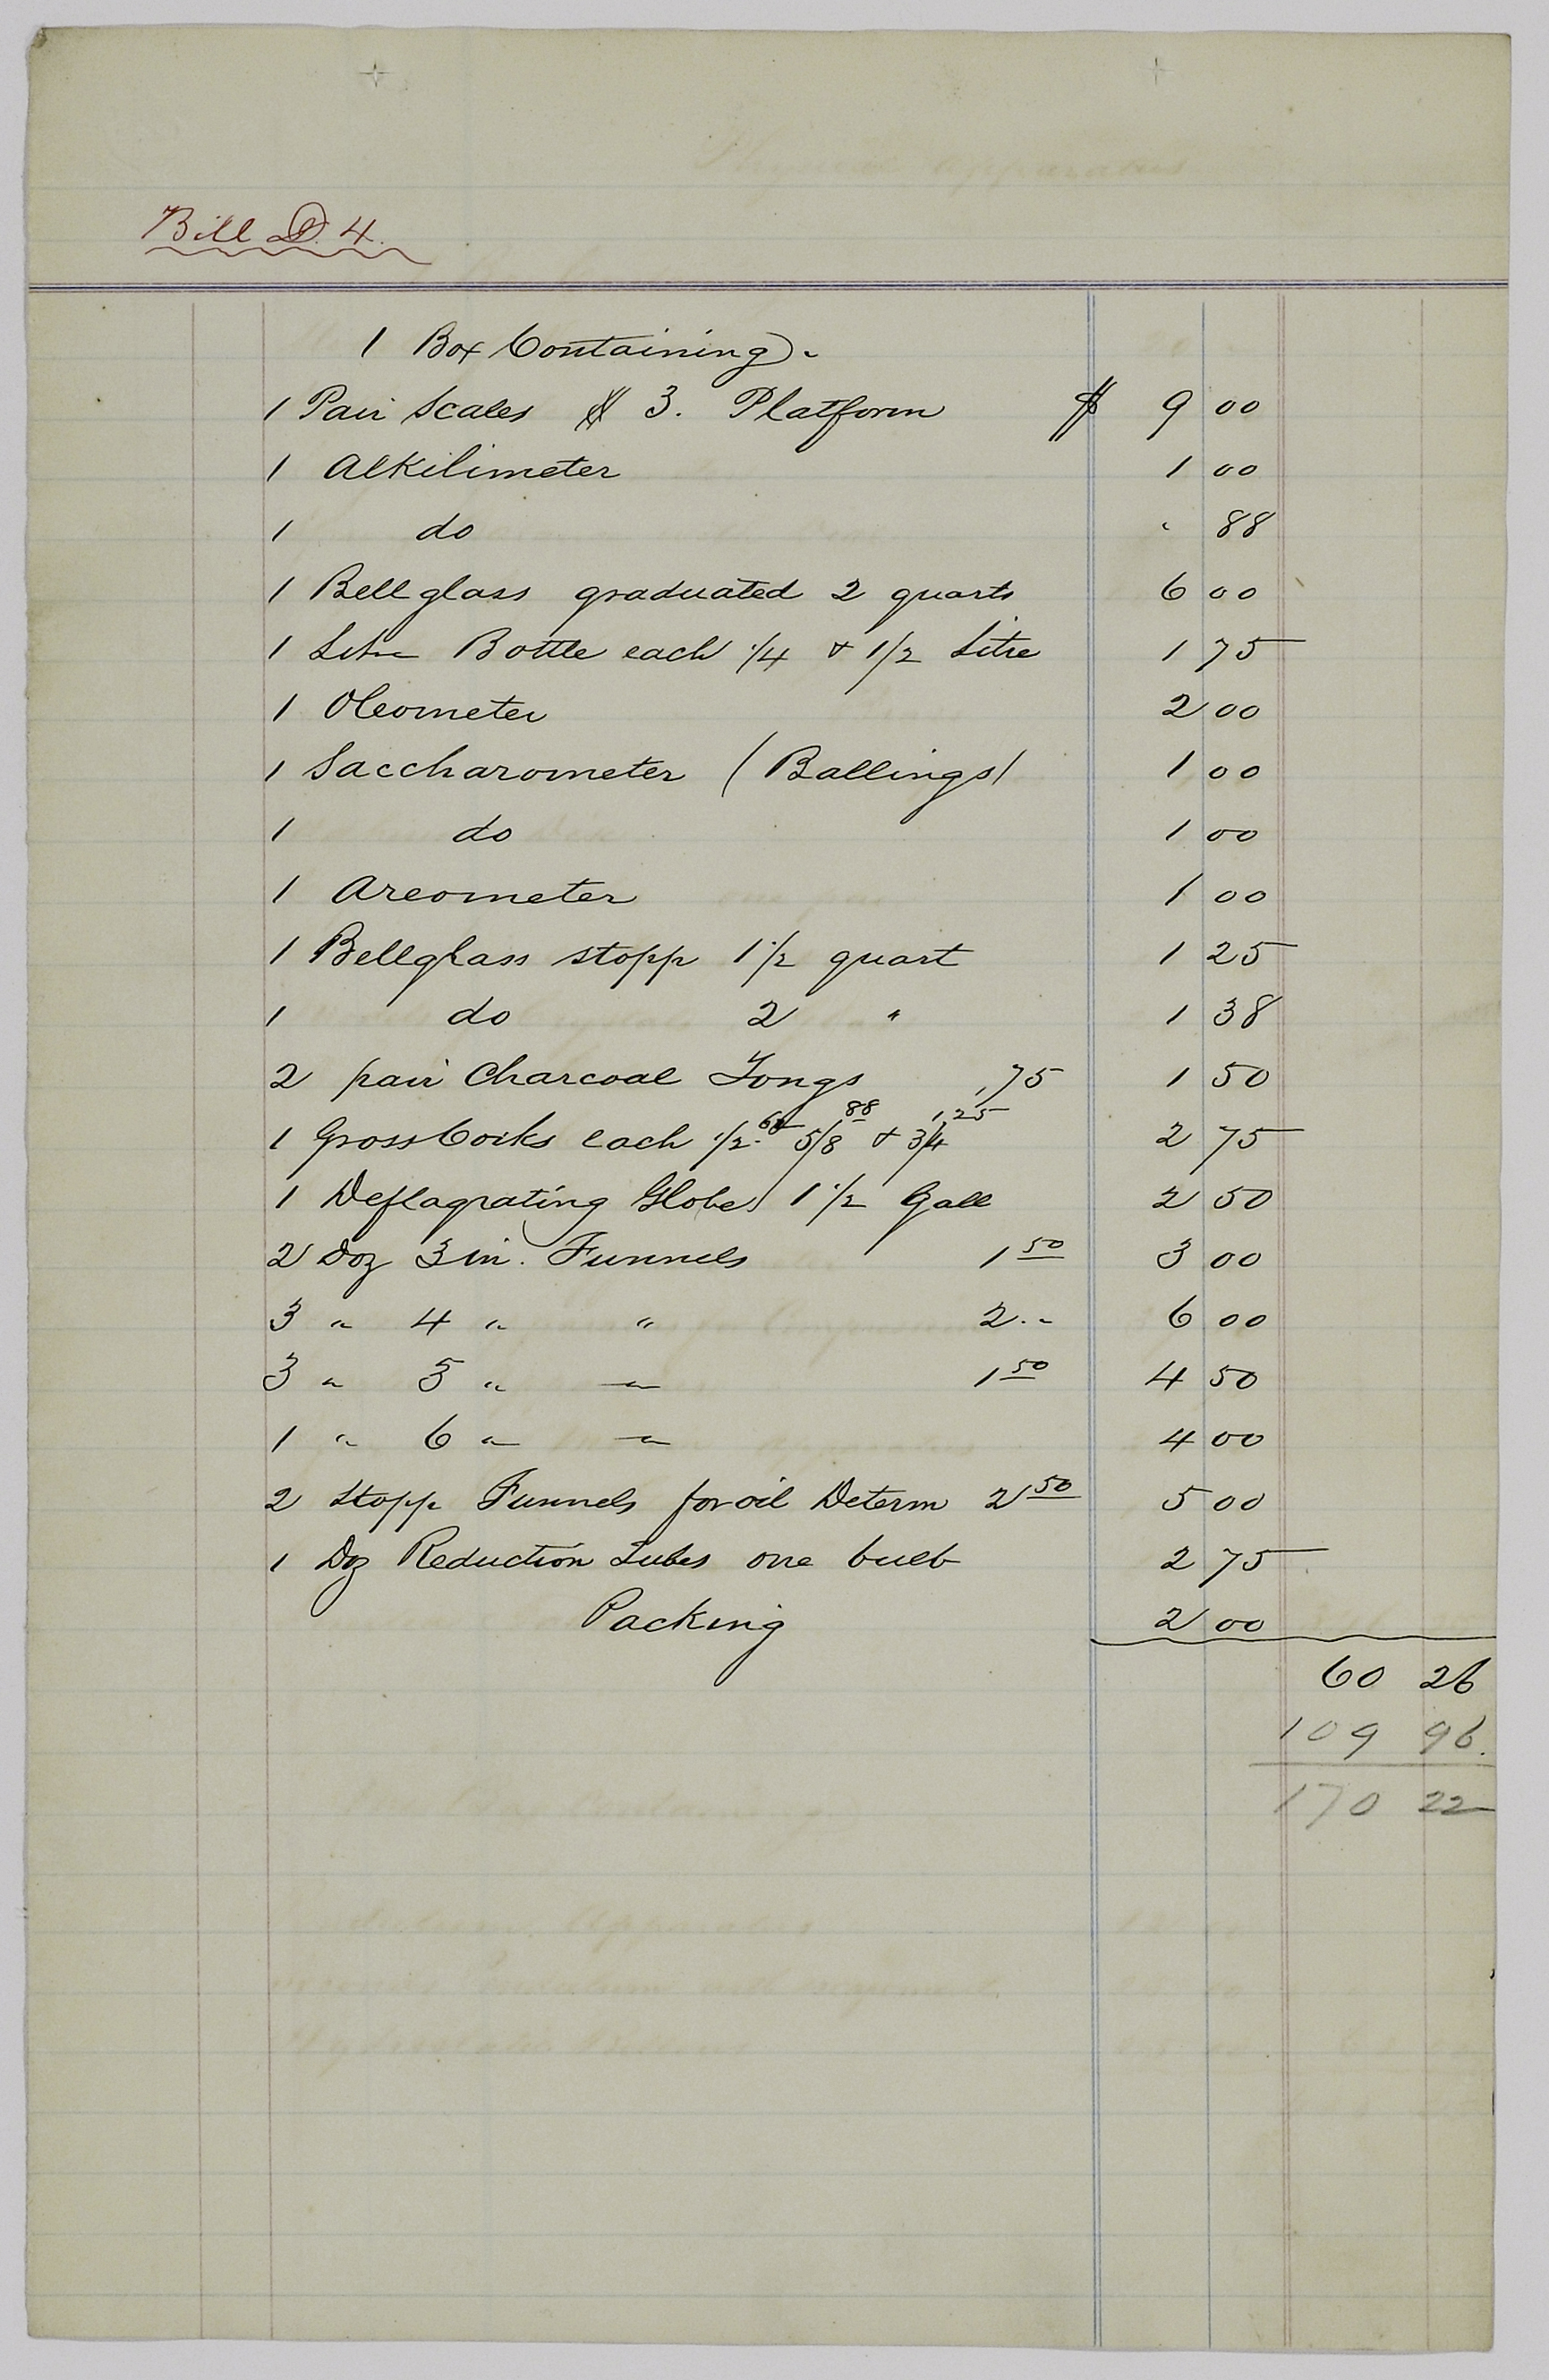 Bill D. 4.
1 Box Containing.
1 Pair Scales # 3. Platform $ 9 00
1 Alkilimeter 1 00
1 do " 88
1 Bellglass graduated 2 quarts 6 00
1 Litre Bottle each 1/4 & 1/2 Litre 1 75
1 Oleometer 2 00
1 Saccharometer (Ballings) 1 00
1 do 1 00
1 Areometer 1 00
1 Bellglass stopp 1 1/2 quart 1 25
1 do 2 " 1 38
2 pair Charcoal Tongs ,75 1 50
1 Gross Corks each 1/2 5/8 88 & 3/4 1,25 2 75
1 Deflagrating Globe 1 1/2 Gall 2 50
2 Doz 3 in. Funnels 1 50 3 00
3 " 4 " " 2.- 6 00
3 " 5 " " 1 50 4 50
1 " 6 " " 4 00
2 Stopp Funnels for oil Determ 2 50 5 00
1 Doz Reduction Tubes one bulb 2 75
Packing 2 00
60 26
109 96.
170 22